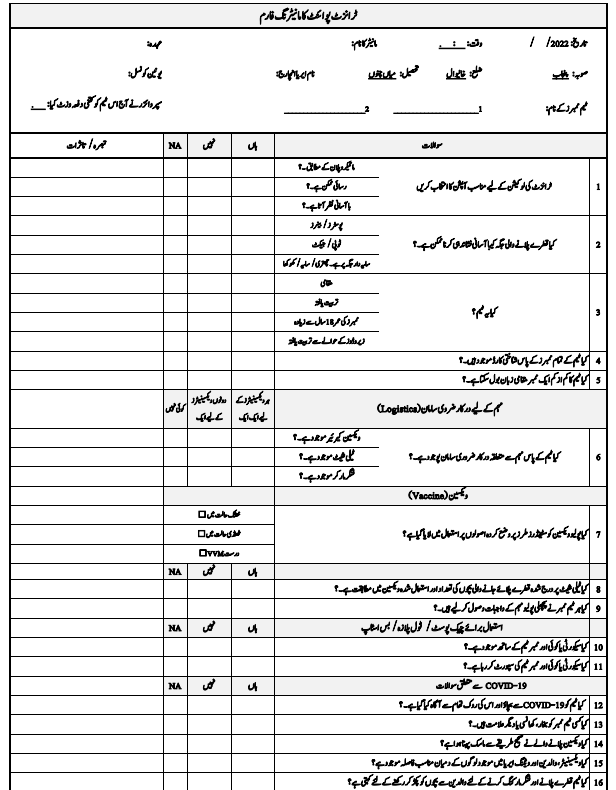 ٹرانزٹ پوائنٹ کا مانیٹرنگ فارم
تاریخ: 2022/ / وقت: __ : __ مانیٹر کا نام: عہدہ:
صوبہ: پنجاب ضلع: خانیوال تحصیل: میاں چنوں نام ایریا انچارج: یونین کونسل:
ٹیم ممبرز کے نام: 1 ____________ 2 ____________ سپروائزر نے آج اس ٹیم کو کتنی دفعہ وزٹ کیا: ___
سوالات ہاں نہیں NA تبصرہ / تاثرات
1 ٹرانزٹ کی لوکیشن کے لیے مناسب آپشن کا انتخاب کریں
مائیکروپلان کے مطابق ہے؟
رسائی ممکن ہے؟
باآسانی نظر آتا ہے؟
2 کیا قطرے پلانے والی جگہ کی باآسانی نشاندہی کرنا ممکن ہے؟
پوسٹرز / بینرز
ٹوپی / جیکٹ
سایہ دار جگہ پر ہے۔ چھتری / سایہ / کھوکھا
3 کیا یہ ٹیم؟
مقامی
تربیت یافتہ
ممبرز کی عمر 18 سال سے زیادہ
زیرو ڈوز کے حوالے سے تربیت یافتہ
4 کیا ٹیم کے تمام ممبرز کے پاس شناختی کارڈ موجود ہیں۔؟
5 کیا ٹیم کا کم از کم ایک ممبر مقامی زبان بول سکتا ہے۔؟
مہم کے لیے درکار ضروری سامان (Logistics) ہر ویکسینیٹرز کے لیے ایک ایک دونوں ویکسینیٹرز کے لیے ایک کوئی نہیں
6 کیا ٹیم کے پاس مہم سے متعلقہ درکار ضروری سامان موجود ہے۔؟
ویکسین کیرئیر موجود ہے۔؟
ٹیلی شیٹ موجود ہے۔؟
فنگر مارکر موجود ہے۔؟
ویکسین (Vaccine)
7 کیا پولیو ویکسین کو سٹینڈرڈ طرز پر وضع کردہ اصولوں پر استعمال میں لایا گیا ہے؟
خشک حالت میں ☐
ٹھنڈی حالت میں ☐
درست VVM ☐
ہاں نہیں NA
8 کیا ٹیلی شیٹ پر درج شدہ قطرے پلائے جانے والی بچوں کی تعداد اور استعمال شدہ ویکسین میں مطابقت ہے۔؟
9 کیا ہر ٹیم ممبر نے پچھلی پولیو مہم کے واجبات وصول کر لیے ہیں۔؟
استعمال برائے چیک پوسٹ / ٹول پلازہ / بس اسٹاپ ہاں نہیں NA
10 کیا سیکورٹی یا کوئی اور ممبر ٹیم کے ساتھ موجود ہے۔؟
11 کیا سیکورٹی یا کوئی اور ممبر ٹیم کی سپورٹ کر رہا ہے۔؟
COVID-19 سے متعلق سوالات ہاں نہیں NA
12 کیا ٹیم کو COVID-19 سے بچاؤ اور اس کی روک تھام سے آگاہ کیا گیا ہے۔؟
13 کیا کسی ٹیم ممبر کو بخار، کھانسی یا دیگر علامت ہیں۔؟
14 کیا ویکسین پلانے والے نے صحیح طریقے سے ماسک پہنا ہوا ہے؟
15 کیا ویکسینیٹر، والدین اور ویٹنگ ایریا میں موجود لوگوں کے درمیان مناسب فاصلہ موجود ہے؟
16 کیا ٹیم قطرے پلانے اور فنگر مارکنگ کرنے کے لئے والدین سے بچوں کو پکڑ کر رکھنے کے لئے کہتی ہے؟